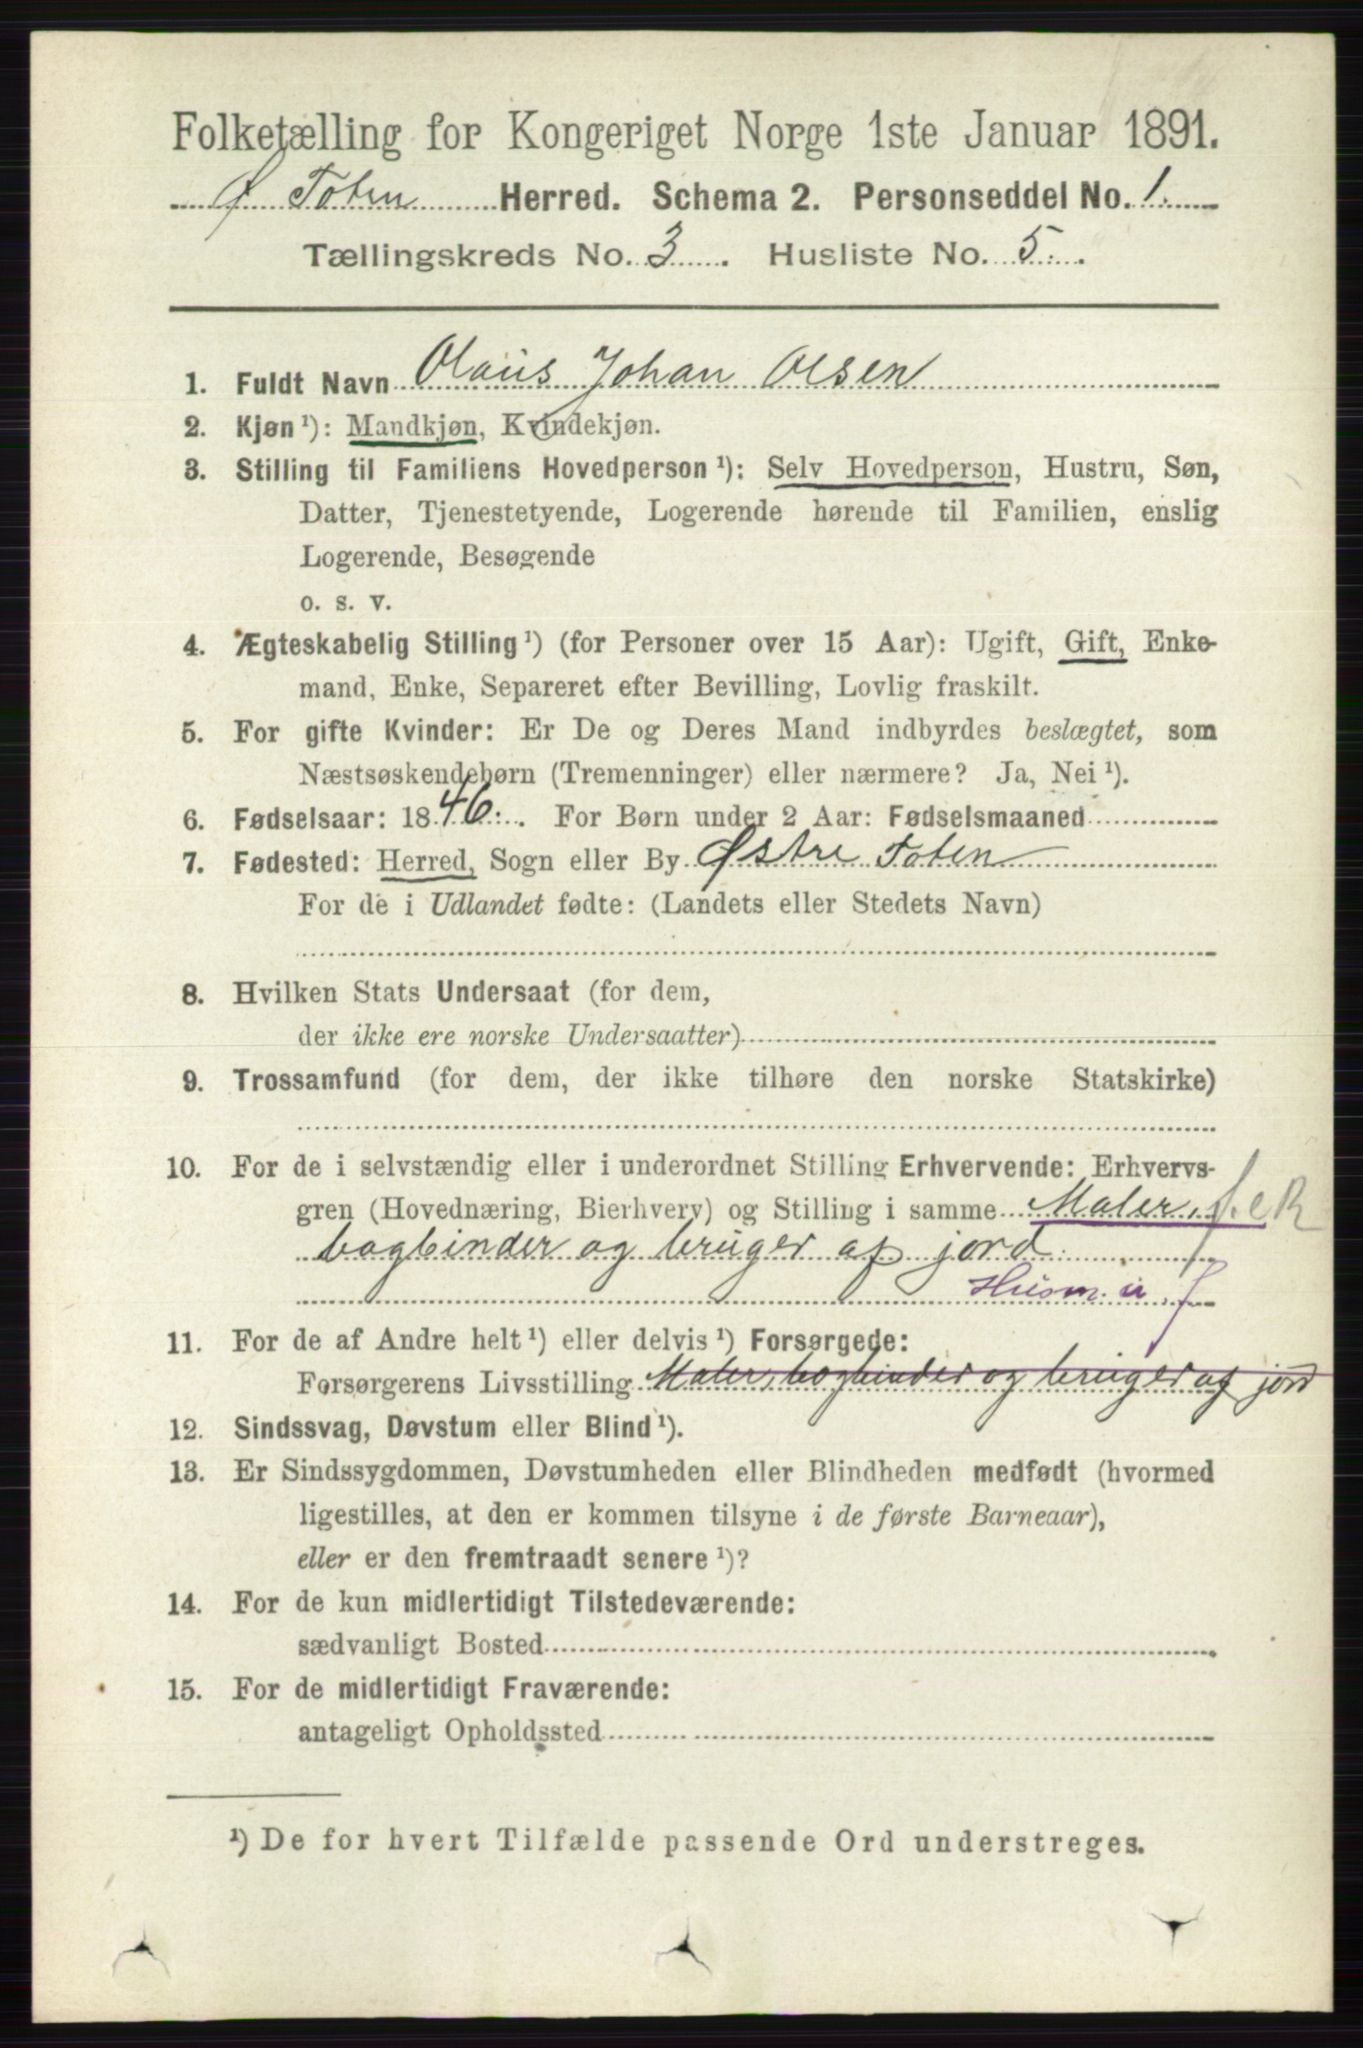 Folketælling for Kongeriget Norge 1ste Januar 1891.
Ø Toten Herred. Schema 2. Personseddel No. 1.
Tællingskreds No. 3. Husliste No. 5.
1. Fuldt Navn Olaus Johan Olsen
2. Kjøn ¹): Mandkjøn, Kvindekjøn.
3. Stilling til Familiens Hovedperson ¹): Selv Hovedperson, Hustru, Søn,
Datter, Tjenestetyende, Logerende hørende til Familien, enslig
Logerende, Besøgende
o. s. v.
4. Ægteskabelig Stilling ¹) (for Personer over 15 Aar): Ugift, Gift, Enke-
mand, Enke, Separeret efter Bevilling, Lovlig fraskilt.
5. For gifte Kvinder: Er De og Deres Mand indbyrdes beslægtet, som
Næstsøskendebørn (Tremenninger) eller nærmere? Ja, Nei ¹).
6. Fødselsaar: 1846. For Børn under 2 Aar: Fødselsmaaned
7. Fødested: Herred, Sogn eller By Østre Toten
For de i Udlandet fødte: (Landets eller Stedets Navn)
8. Hvilken Stats Undersaat (for dem,
der ikke ere norske Undersaatter)
9. Trossamfund (for dem, der ikke tilhøre den norske Statskirke)
10. For de i selvstændig eller i underordnet Stilling Erhvervende: Erhvervs-
gren (Hovednæring, Bierhverv) og Stilling i samme Maler,
bogbinder og bruger af jord.
Husm. u. J
11. For de af Andre helt ¹) eller delvis ¹) Forsørgede:
Forsørgerens Livsstilling Maler, bogbinder og bruger af jord
12. Sindssvag, Døvstum eller Blind ¹).
13. Er Sindssygdommen, Døvstumheden eller Blindheden medfødt (hvormed
ligestilles, at den er kommen tilsyne i de første Barneaar),
eller er den fremtraadt senere ¹)?
14. For de kun midlertidigt Tilstedeværende:
sædvanligt Bosted
15. For de midlertidigt Fraværende:
antageligt Opholdssted
¹) De for hvert Tilfælde passende Ord understreges.